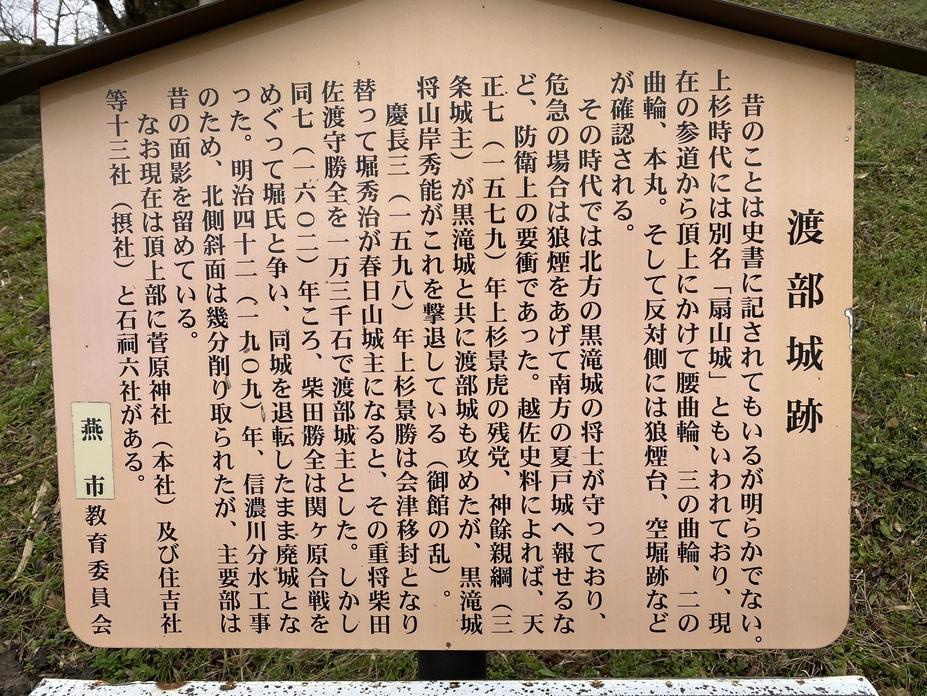 渡部城跡
昔のことは史書に記されてもいるが明らかでない。
上杉時代には別名「扇山城」ともいわれており、現
在の参道から頂上にかけて腰曲輪、三の曲輪、二の
曲輪、本丸。そして反対側には狼煙台、空堀跡など
が確認される。
その時代では北方の黒滝城の将士が守っており、
危急の場合は狼煙をあげて南方の夏戸城へ報せるな
ど、防衛上の要衝であった。越佐史料によれば、天
正七（一五七九）年上杉景虎の残党、神餘親綱（三
条城主）が黒滝城と共に渡部城も攻めたが、黒滝城
将山岸秀能がこれを撃退している（御館の乱）。
慶長三（一五九八）年上杉景勝は会津移封となり
替って堀秀治が春日山城主になると、その重将柴田
佐渡守勝全を一万三千石で渡部城主とした。しかし
同七（一六〇二）年ころ、柴田勝全は関ヶ原合戦を
めぐって堀氏と争い、同城を退転したまま廃城とな
った。明治四十二（一九〇九）年、信濃川分水工事
のため、北側斜面は幾分削り取られたが、主要部は
昔の面影を留めている。
なお現在は頂上部に菅原神社（本社）及び住吉社
等十三社（摂社）と石祠六社がある。
燕市教育委員会